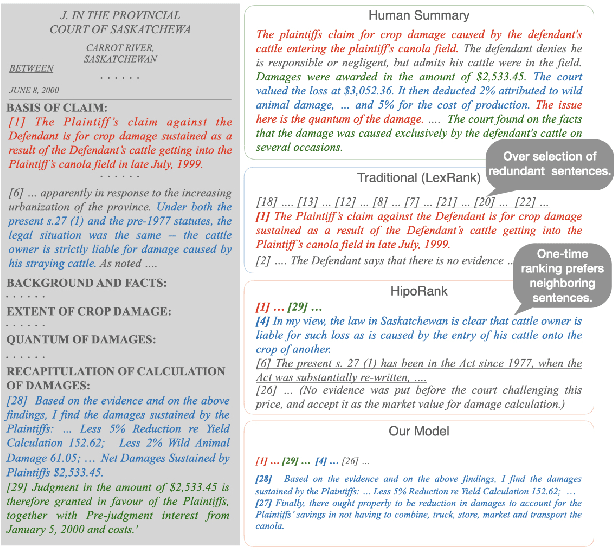 J. IN THE PROVINCIAL
COURT OF SASKATCHEWA
CARROT RIVER,
SASKATCHEWAN
BETWEEN
. . . . . .
JUNE 8, 2000
BASIS OF CLAIM:
[1] The Plaintiff's claim against the
Defendant is for crop damage sustained as a
result of the Defendant's cattle getting into the
Plaintiff's canola field in late July, 1999.
. . . . . .
[6] … apparently in response to the increasing
urbanization of the province. Under both the
present s.27 (1) and the pre-1977 statutes, the
legal situation was the same – the cattle
owner is strictly liable for damage caused by
his straying cattle. As noted ….
BACKGROUND AND FACTS:
. . . . . .
EXTENT OF CROP DAMAGE:
. . . . . .
QUANTUM OF DAMAGES:
. . . . . .
RECAPITULATION OF CALCULATION
OF DAMAGES:
[28] Based on the evidence and on the above
findings, I find the damages sustained by the
Plaintiffs: … Less 5% Reduction re Yield
Calculation 152.62; Less 2% Wild Animal
Damage 61.05; … Net Damages Sustained by
Plaintiffs $2,533.45.
[29] Judgment in the amount of $2,533.45 is
therefore granted in favour of the Plaintiffs,
together with Pre-judgment interest from
January 5, 2000 and costs.'
Human Summary
The plaintiffs claim for crop damage caused by the defendant's
cattle entering the plaintiff's canola field. The defendant denies he
is responsible or negligent, but admits his cattle were in the field.
Damages were awarded in the amount of $2,533.45. The court
valued the loss at $3,052.36. It then deducted 2% attributed to wild
animal damage, … and 5% for the cost of production. The issue
here is the quantum of the damage. …. The court found on the facts
that the damage was caused exclusively by the defendant's cattle on
several occasions.
Over selection of
redundant sentences.
Traditional (LexRank)
[18] …. [13] … [12] … [8] … [7] … [21] … [20] … [22] …
[1] The Plaintiff's claim against the Defendant is for crop damage
sustained as a result of the Defendant's cattle getting into the
Plaintiff's canola field in late July, 1999.
[2] …. The Defendant says that there is no evidence ..
One-time
ranking prefers
neighboring
sentences.
HipoRank
[1] … [29] …
[4] In my view, the law in Saskatchewan is clear that cattle owner is
liable for such loss as is caused by the entry of his cattle onto the
crop of another.
[6] The present s. 27 (1) has been in the Act since 1977, when the
Act was substantially re-written, ….
[26] … (No evidence was put before the court challenging this
price, and accept it as the market value for damage calculation.)
Our Model
[1] … [29] … [4] … [26] …
[28] Based on the evidence and on the above findings, I find the damages
sustained by the Plaintiffs: … Less 5% Reduction re Yield Calculation 152.62; …
[27] Finally, there ought properly to be reduction in damages to account for the
Plaintiffs' savings in not having to combine, truck, store, market and transport the
canola.